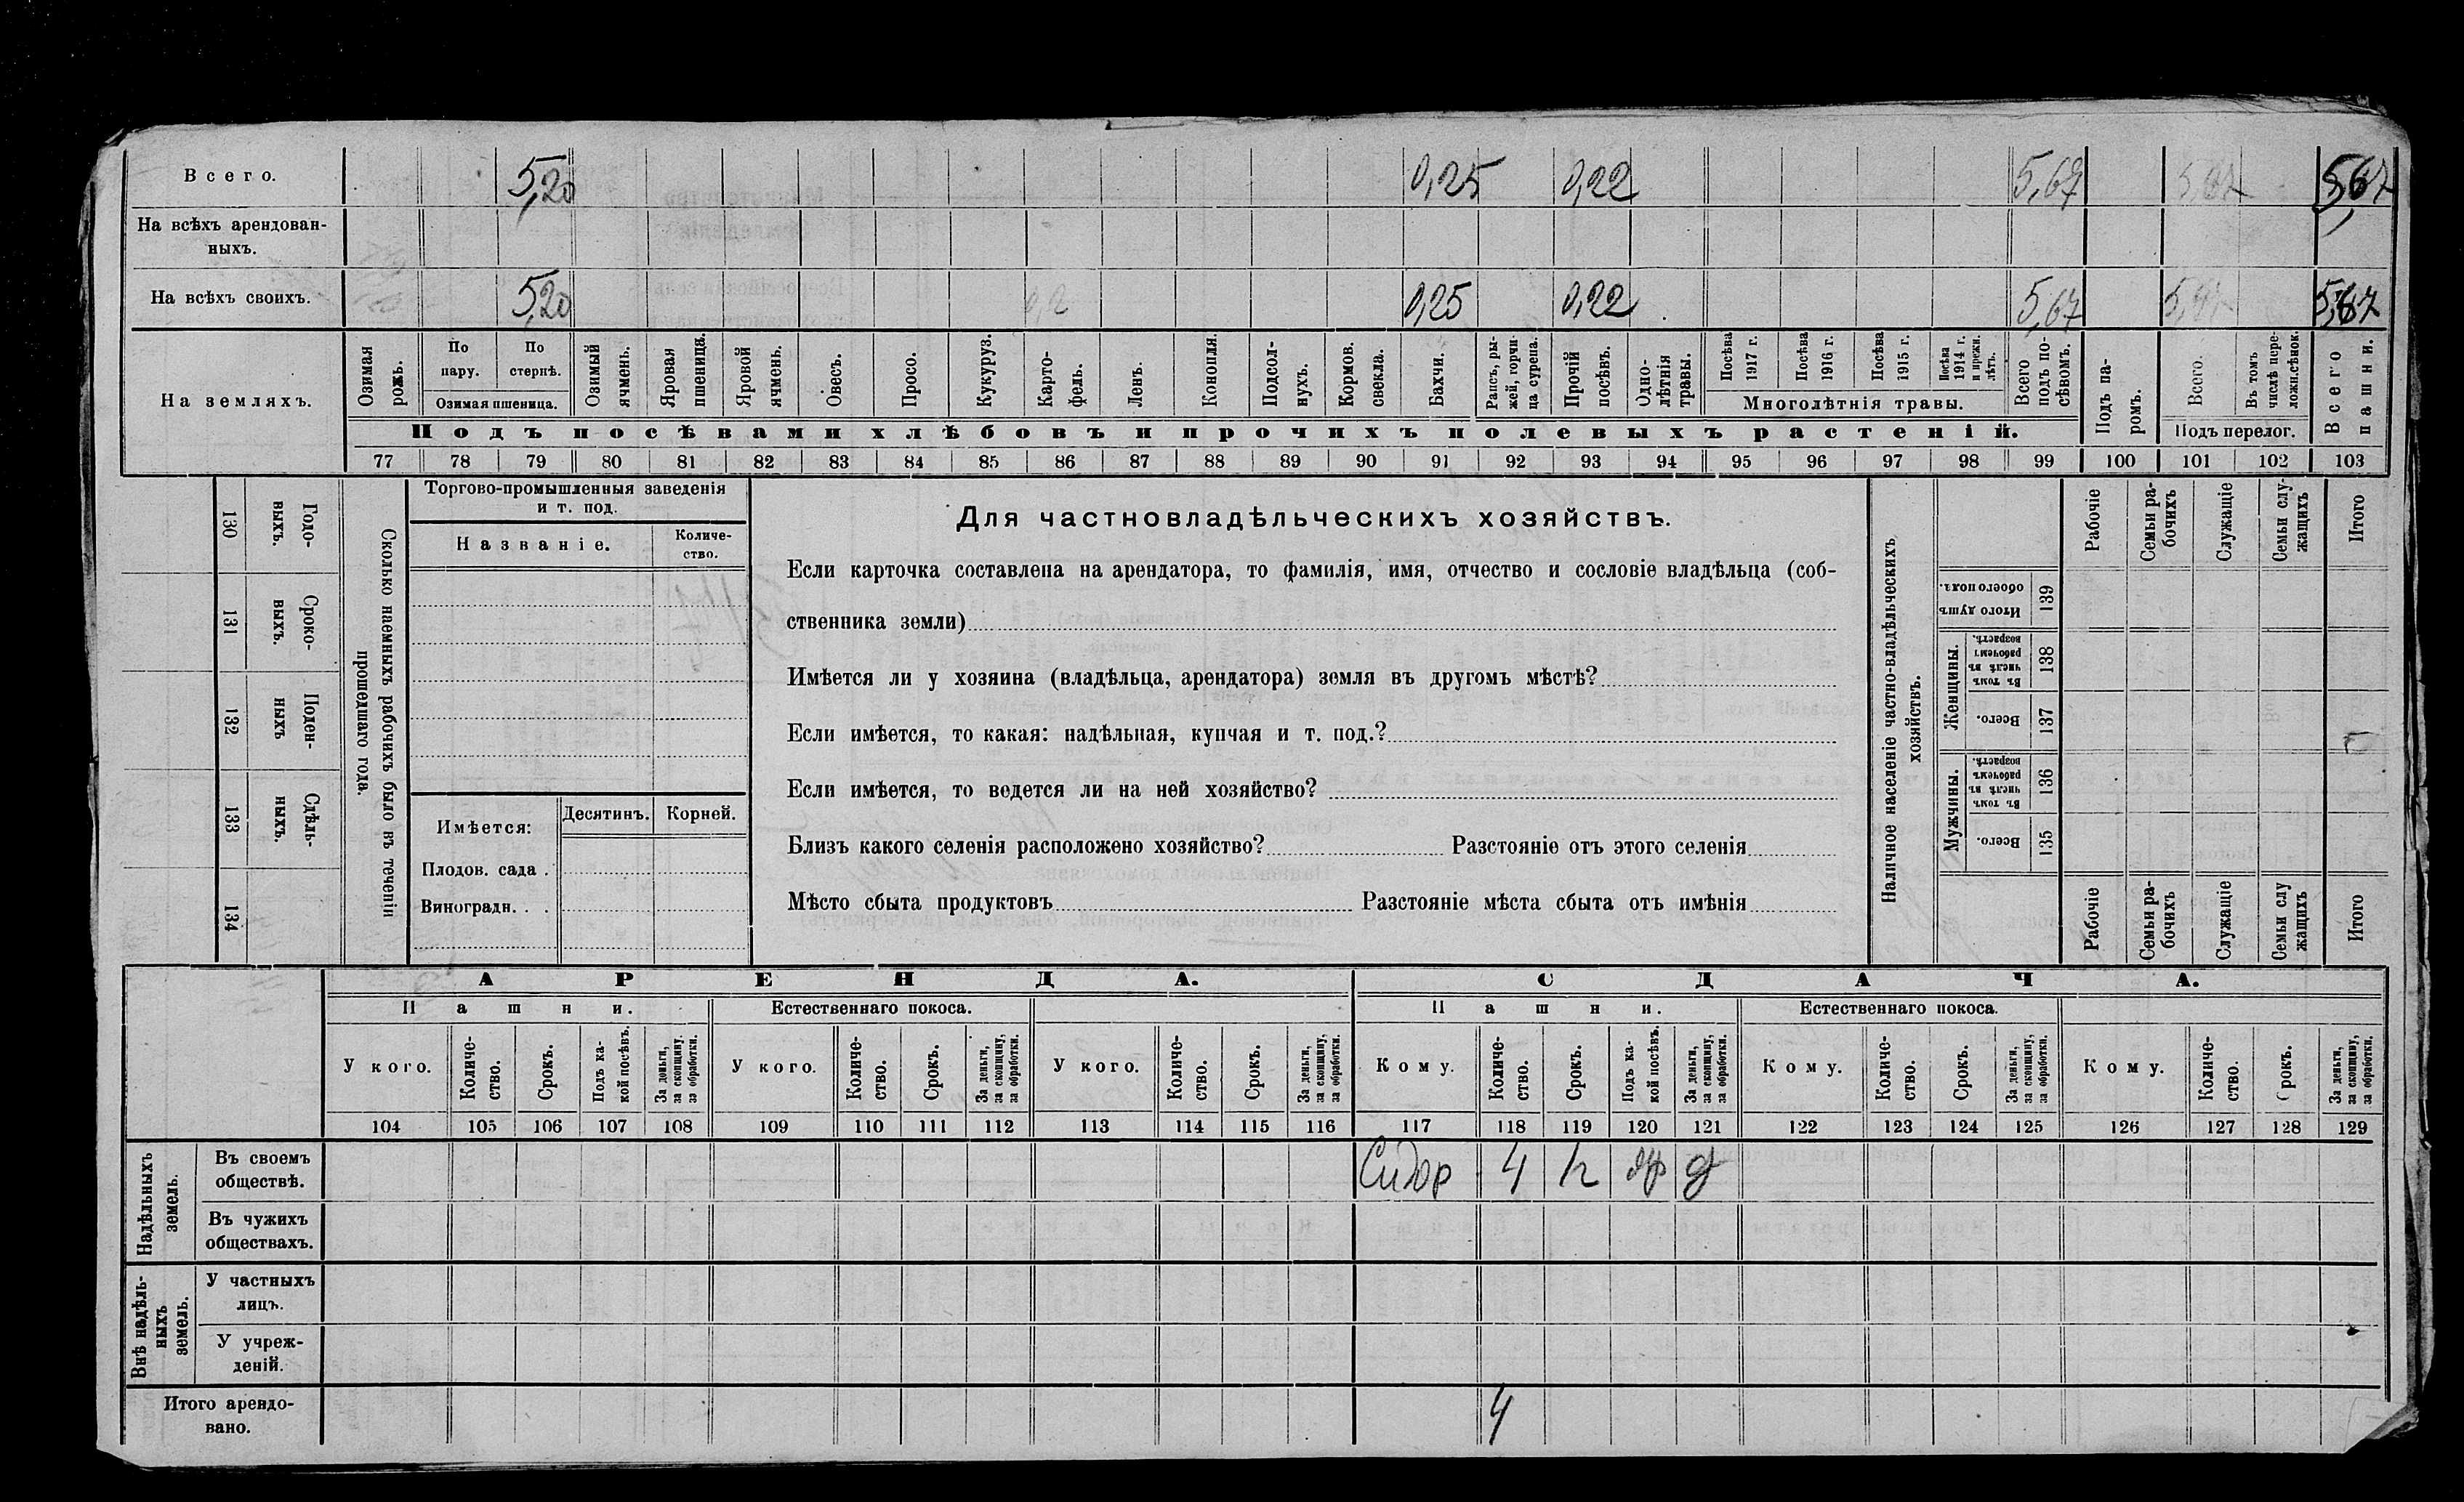 Всего. 5,20 0,25 0,22 5,67 5,67 5,67
На всѣхъ арендован-
ныхъ.
На всѣхъ своихъ. 5,20 0,2 0,25 0,22 5,67 5,67
На земляхъ.
Озимая рожь.
По пару.
По стернѣ.
Озимая пшеница.
Озимый ячмень.
Яровая пшеница.
Яровой ячмень.
Овесъ.
Просо.
Кукуруз.
Карто-
фель.
Ленъ.
Конопля.
Подсол-
нухъ.
Кормов. свекла.
Бахчи.
Рапсъ, ры-
жей, горчи-
ца сурепа.
Прочій посѣвъ.
Одно-
лѣтнія травы.
Посѣва 1917 г.
Посѣва 1916 г.
Посѣва 1915 г.
Посѣва 1914 г. и прежн. лѣтъ.
Многолѣтнія травы.
Всего подъ по-
сѣвомъ.
Подъ па-
ромъ.
Всего.
Въ томъ числѣ пере-
ложн.сѣнок.
Подъ перелог.
Всего пашни.
Подъ посѣвами хлѣбовъ и прочихъ полевыхъ растеній.
77 78 79 80 81 82 83 84 85 86 87 88 89 90 91 92 93 94 95 96 97 98 99 100 101 102 103
130 Годо-
выхъ.
131 Сроко-
выхъ.
132 Поден-
ныхъ
133 Сдѣль-
ныхъ.
134
Сколько наемныхъ рабочихъ было въ теченіи
прошедшаго года.
Торгово-промышленныя заведенія
и т. под.
Названіе.
Количе-
ство.
Имѣется:
Десятинъ.
Корней.
Плодов. сада .
Виноградн. . .
Для частновладѣльческихъ хозяйствъ.
Если карточка составлена на арендатора, то фамилія, имя, отчество и сословіе владѣльца (соб-
ственника земли)
Имѣется ли у хозяина (владѣльца, арендатора) земля въ другомъ мѣстѣ?
Если имѣется, то какая: надѣльная, купчая и т. под.?
Если имѣется, то ведется ли на ней хозяйство?
Близъ какого селенія расположено хозяйство? Разстояніе отъ этого селенія
Мѣсто сбыта продуктовъ Разстояніе мѣста сбыта отъ имѣнія
Наличное населеніе частно-владѣльческихъ
хозяйствъ.
Рабочіе
Семьи ра-
бочихъ
Служащіе
Семьи слу-
жащихъ
Итого
Итого душъ обоего пола.
139
Женщины.
Въ томъ числѣ въ рабочемъ возрастѣ.
138
Всего.
137
Мужчины.
Въ томъ числѣ въ рабочемъ возрастѣ.
136
Всего.
135
Рабочіе
Семьи ра-
бочихъ
Служащіе
Семьи слу
жащихъ
Итого
АРЕНДА. СДАЧА.
Пашни. Естественнаго покоса. Пашни. Естественнаго покоса.
У кого.
Количе-
ство.
Срокъ.
Подъ ка-
кой посѣвъ.
За деньги, за скопщину, за обработки.
У кого.
Количе-
ство.
Срокъ.
За деньги, за скопщину, за обработки.
У кого.
Количе-
ство.
Срокъ.
За деньги, за скопщину, за обработки.
Кому.
Количе-
ство.
Срокъ.
Подъ ка-
кой посѣвъ.
За деньги, за скопщину, за обработки.
Кому.
Количе-
ство.
Срокъ.
За деньги, за скопщину, за обработки.
Кому.
Количе-
ство.
Срокъ.
За деньги, за скопщину, за обработки.
104 105 106 107 108 109 110 111 112 113 114 115 116 117 118 119 120 121 122 123 124 125 126 127 128 129
Надѣльныхъ
земель.
Въ своемъ
обществѣ. Сидор 4 д
Въ чужихъ
обществахъ.
Внѣ надѣль-
ныхъ
земель.
У частныхъ
лицъ.
У учреж-
деній.
Итого арендо-
вано. 4